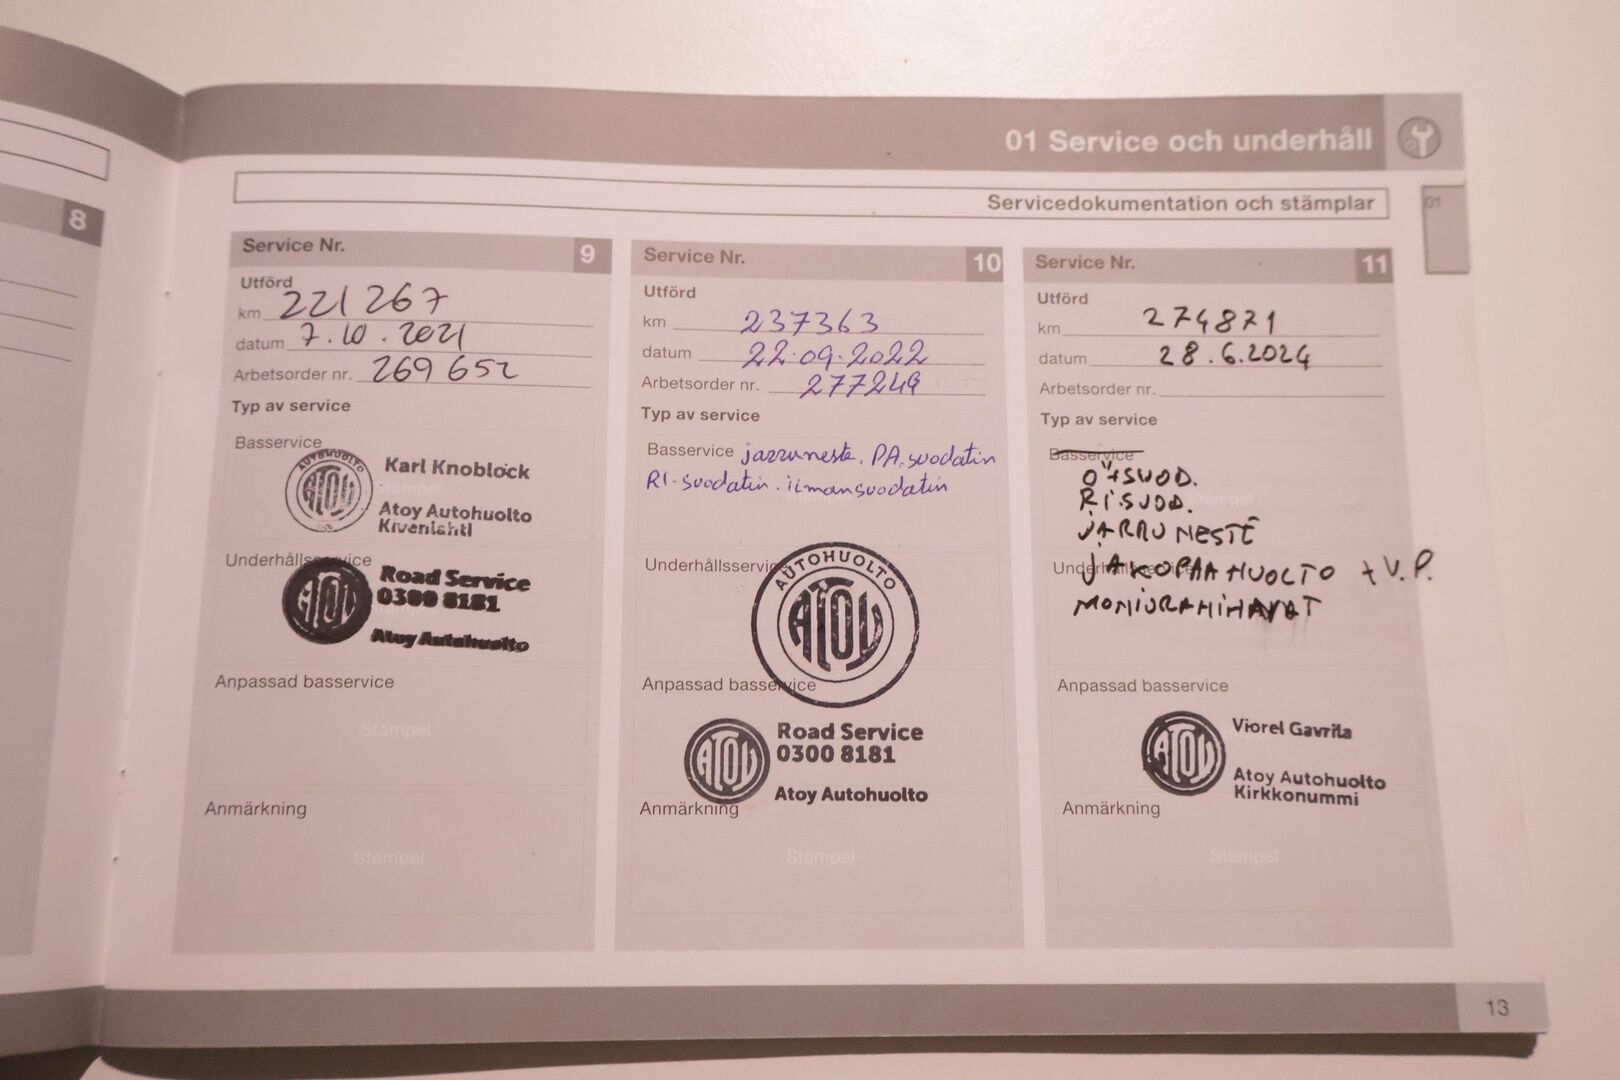 8
01 Service och underhåll
Servicedokumentation och stämplar
01
Service Nr. 9
Utförd
km 221 267
datum 7.10.2021
Arbetsorder nr. 269 652
Typ av service
Basservice
AUTOHUOLTO
ATOY
Karl Knoblock
Stämpel
Atoy Autohuolto
Kivenlahti
Underhållsservice
ATOY
Road Service
0300 8181
Atoy Autohuolto
Anpassad basservice
Stämpel
Anmärkning
Stämpel
Service Nr. 10
Utförd
km 237363
datum 22.09.2022
Arbetsorder nr. 277249
Typ av service
Basservice jarruneste, PA.suodatin
RI-suodatin. ilmansuodatin
Underhållsservice
AUTOHUOLTO
ATOY
Anpassad basservice
ATOY
Road Service
0300 8181
Atoy Autohuolto
Anmärkning
Stämpel
Service Nr. 11
Utförd
km 274871
datum 28.6.2024
Arbetsorder nr.
Typ av service
Basservice
Ö+SUOD.
RI.SUOD.
Stämpel
JARRUNESTE
Underhållsservice
JAKOPÄÄHUOLTO + V.P.
MONIURAHIHNAT
Anpassad basservice
ATOY
Viorel Gavrila
Atoy Autohuolto
Kirkkonummi
Anmärkning
Stämpel
13